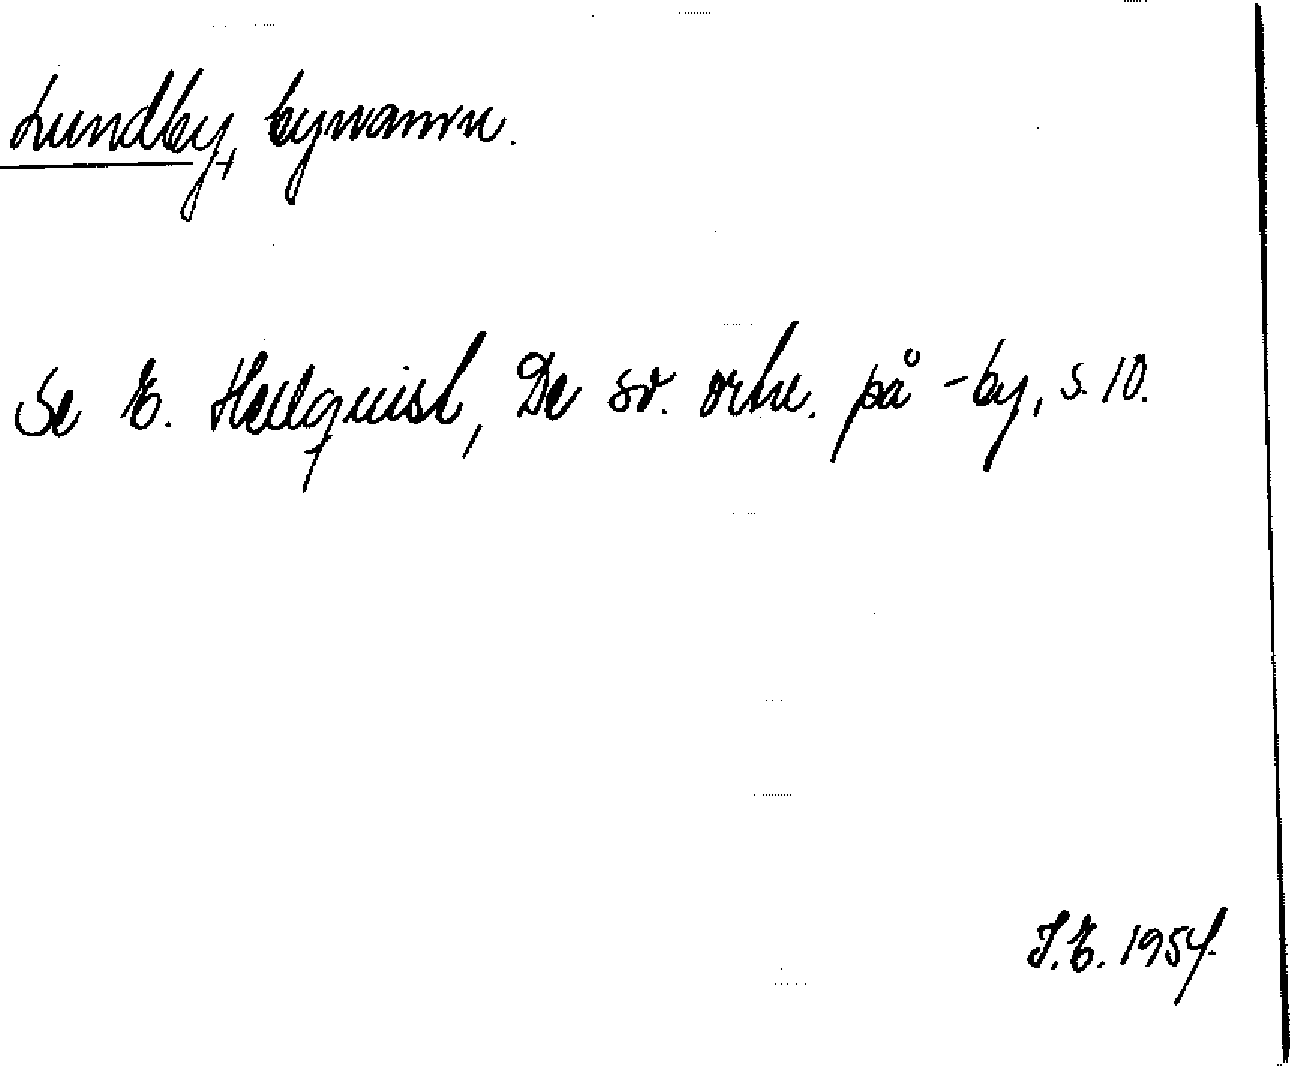 Lundby, bynamn.
Se E. Hellquist, De sv. ortn. på -by, s. 10.
J.E. 1954.